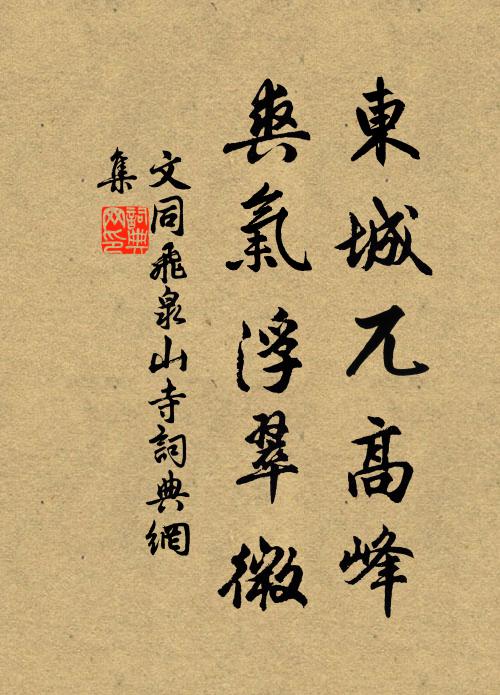 東城兀高峰
爽氣浮翠微
文同飛泉山寺詞典網
集
詞典
网印